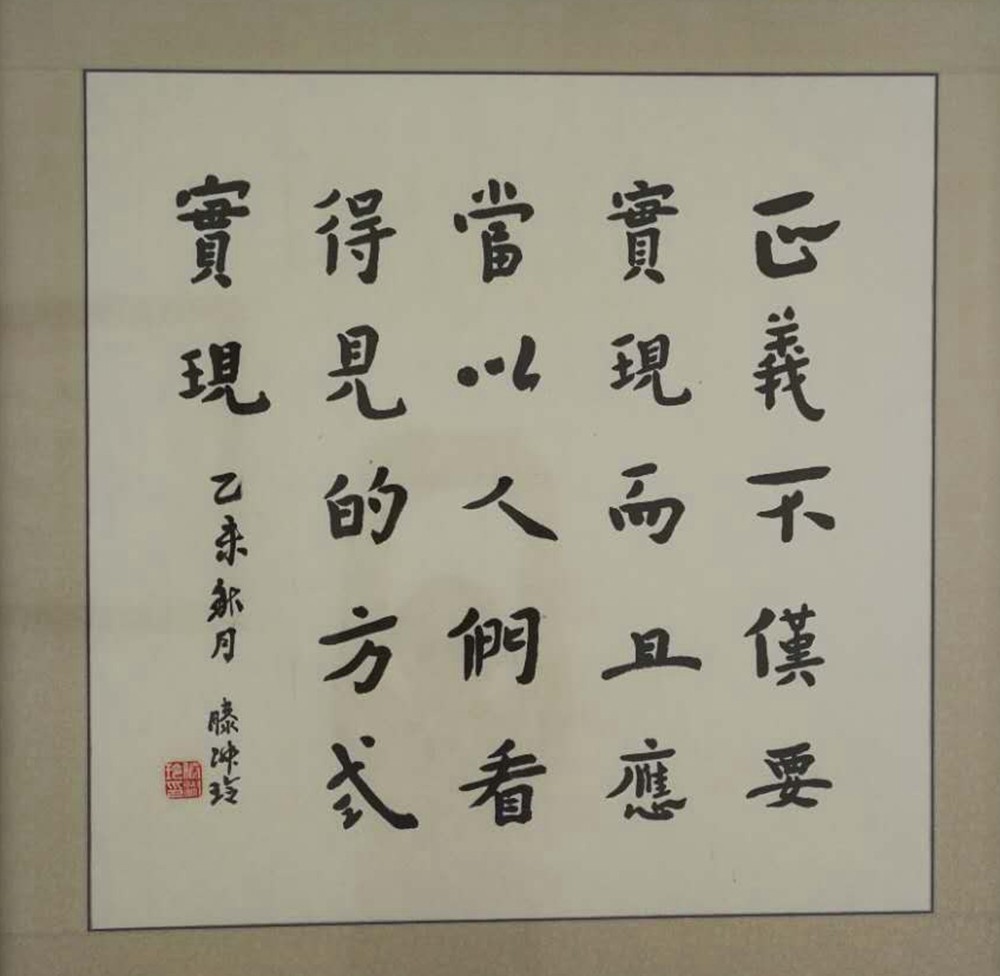 正義不僅要
實現而且應
當以人們看
得見的方式
實現
乙未秋月 滕沖玲